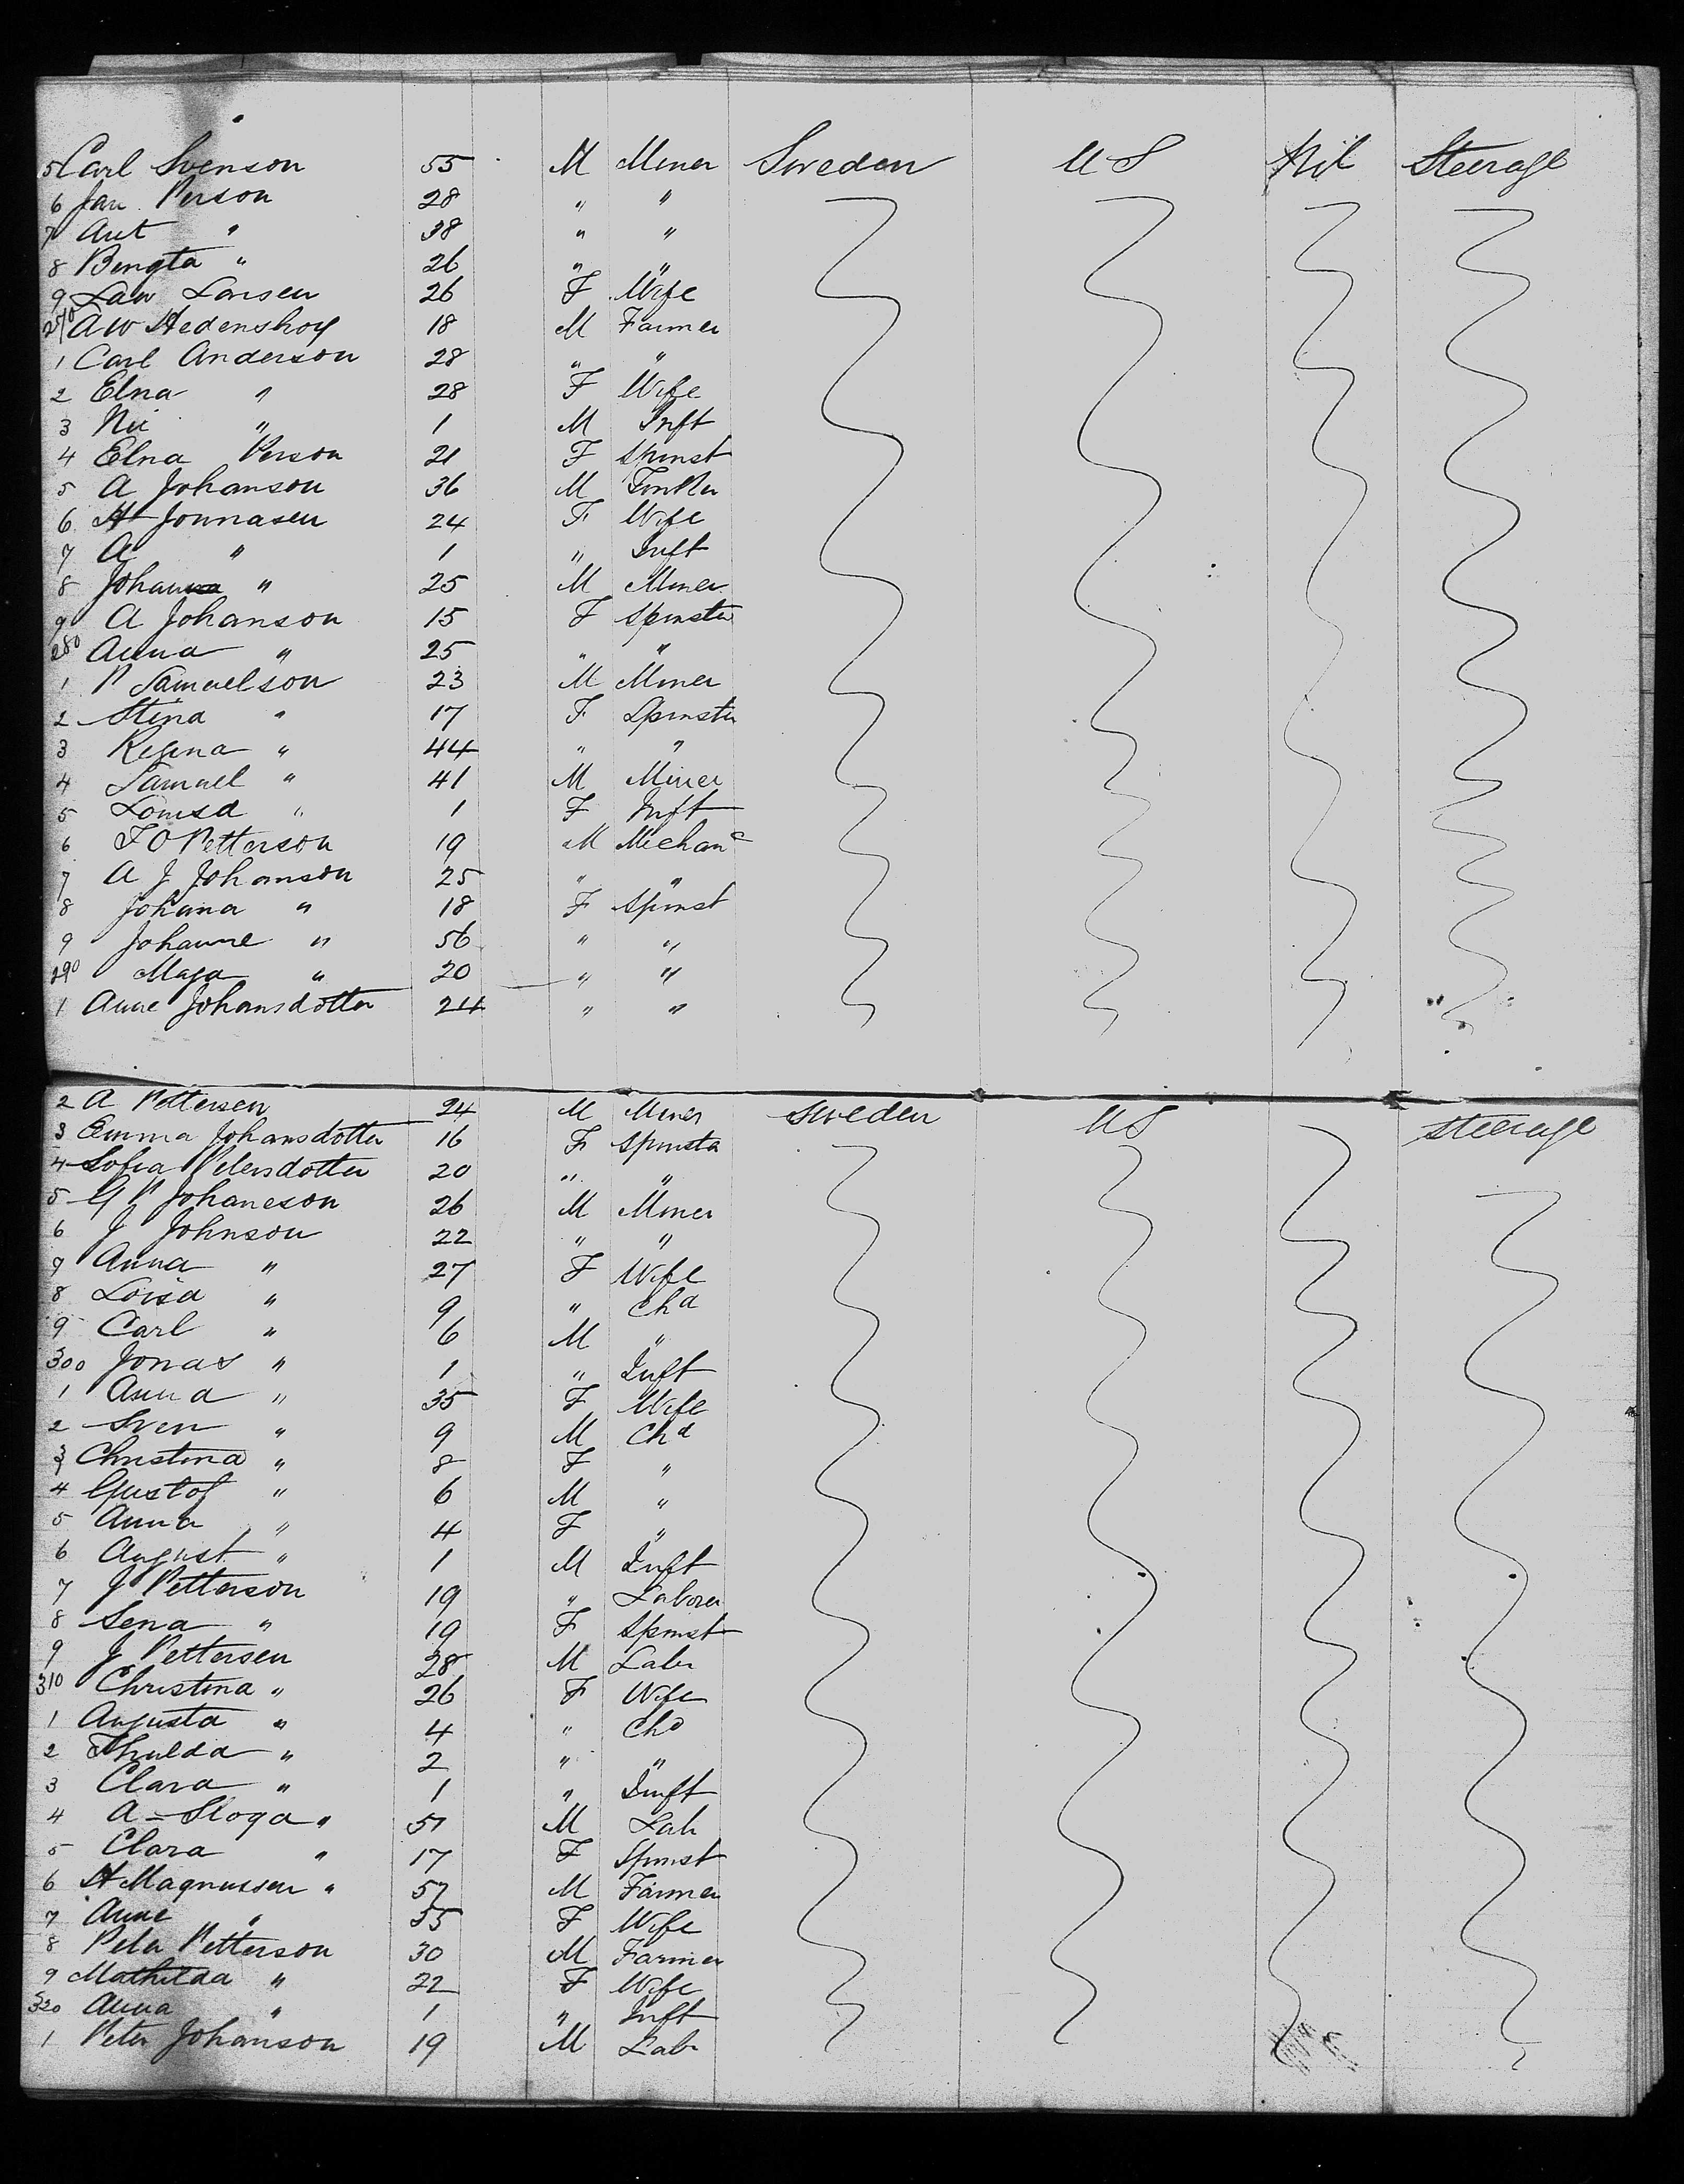 5 Carl Svenson 55 M Miner Sweden US Nil Steerage
6 Jan Person 28 " "
7 Aut " 38 " "
8 Bengta " 26 " "
9 Law Larsen 26 F Wife
270 A W Hedenskoy 18 M Farmer
1 Carl Anderson 28 " "
2 Elna " 28 F Wife
3 " 1 M Inft
4 Elna Person 21 F Spinst
5 A Johanson 36 M
6 H Jonnasen 24 F Wife
7 A " 1 " Inft
8 Johan " 25 M Miner
9 A Johanson 15 F Spinster
280 Anna " 25 " "
1 P Samuelson 23 M Miner
2 Stina " 17 F Spinster
3 Regina " 44 " "
4 Samuel " 41 M Miner
5 Louisa " 1 F Inft
6 F O Petterson 19 M Mechanc
7 A J Johanson 25 " "
8 Johana " 18 F Spinst
9 Johanne " 56 " "
290 Maja " 20 " "
1 Anne Johansdotter 24 " "
2 A Pettersen 24 M Miner Sweden US Steerage
3 Emma Johansdotter 16 F Spinster
4 Sofia Petersdotter 20 " "
5 G P Johaneson 26 M Miner
6 J Johnson 22 " "
7 Anna " 27 F Wife
8 Loisa " 9 " Chd
9 Carl " 6 M "
300 Jonas " 1 " Inft
1 Anna " 35 F Wife
2 Sven " 9 M Chd
3 Christina " 8 F "
4 Gustof " 6 M "
5 Anna " 4 F "
6 August " 1 M Inft
7 J Petterson 19 " Laborer
8 Sena " 19 F Spinst
9 J Pettersen 28 M Labr
310 Christina " 26 F Wife
1 Augusta " 4 " Chd
2 Thulda " 2 " "
3 Clara " 1 " Inft
4 A - Sloga " 51 M Lab
5 Clara " 17 F Spinst
6 H Magnussen " 57 M Farmer
7 Anne " 55 F Wife
8 Peter Petterson 30 M Farmer
9 Mathilda " 22 F Wife
320 Anna " 1 " Inft
1 Peter Johanson 19 M Labr